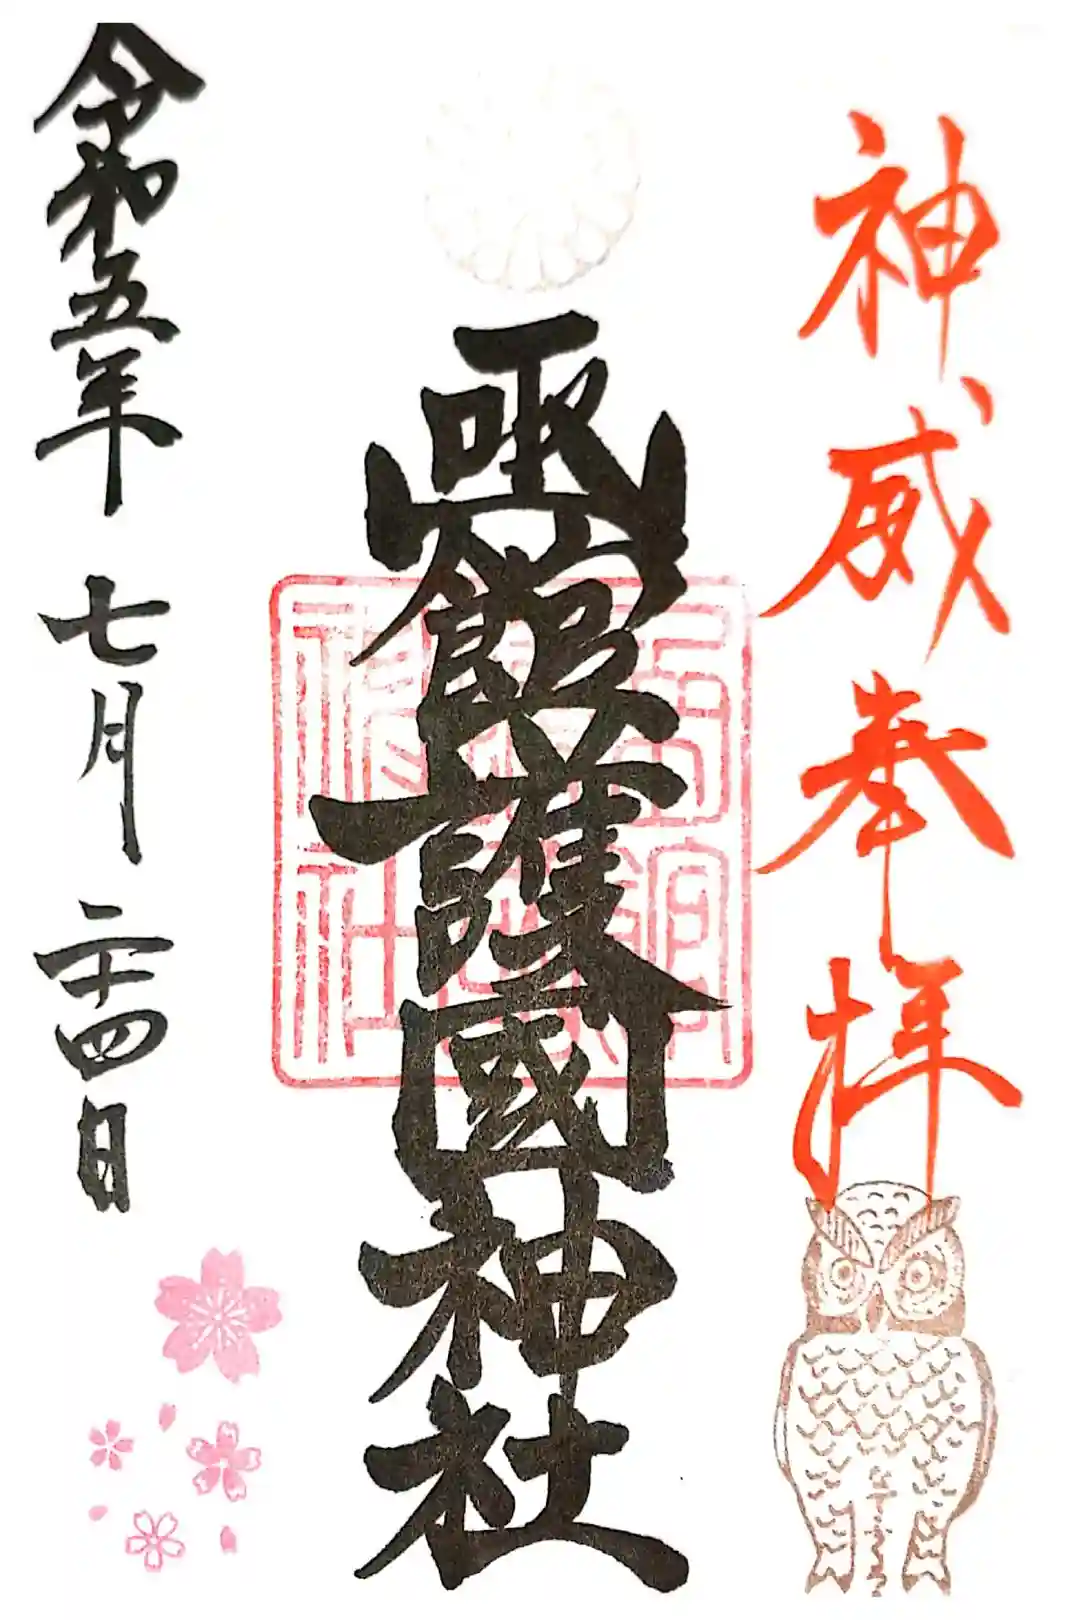 神威奉拝
函館護國神社
令和五年 七月 二十四日